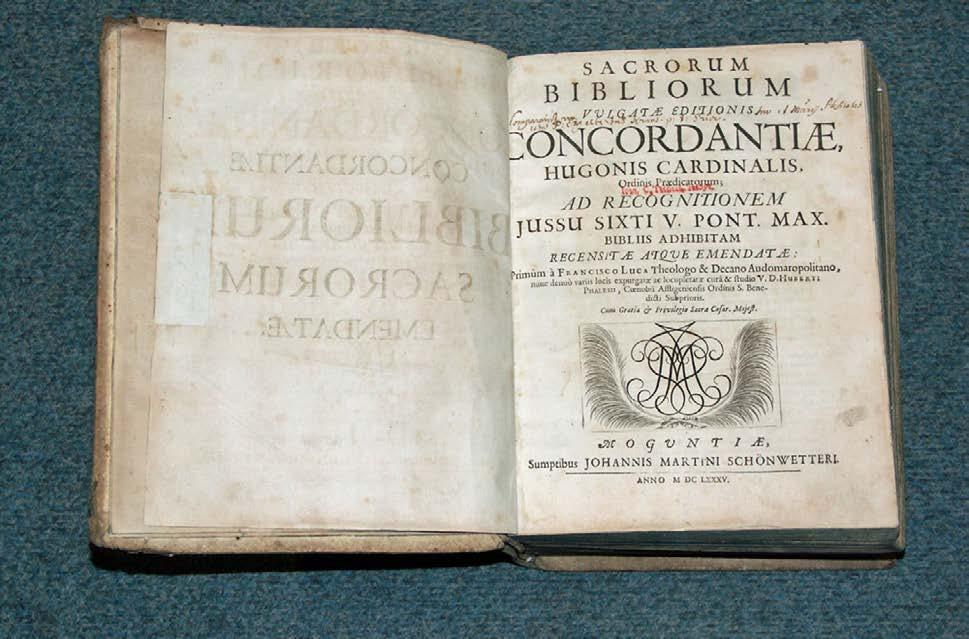 SACRORUM
BIBLIORUM
VULGATÆ EDITIONIS
CONCORDANTIÆ,
HUGONIS CARDINALIS,
Ordinis Prædicatorum;
AD RECOGNITIONEM
JUSSU SIXTI V. PONT. MAX.
BIBLIIS ADHIBITAM
RECENSITÆ ATQVE EMENDATÆ:
Primùm à FRANCISCO LUCA Theologo & Decano Audomaropolitano,
nunc denuò variis locis expurgatæ ac locupletatæ curâ & studio V. D. HUBERTI
PHALESII, Cœnobii Affligeniensis Ordinis S. Bene-
dicti Subprioris.
Cum Gratia & Privilegio Sacræ Cæsar. Majest.
MOGVNTIÆ,
Sumptibus JOHANNIS MARTINI SCHÖNWETTERI.
ANNO M DC LXXXV.